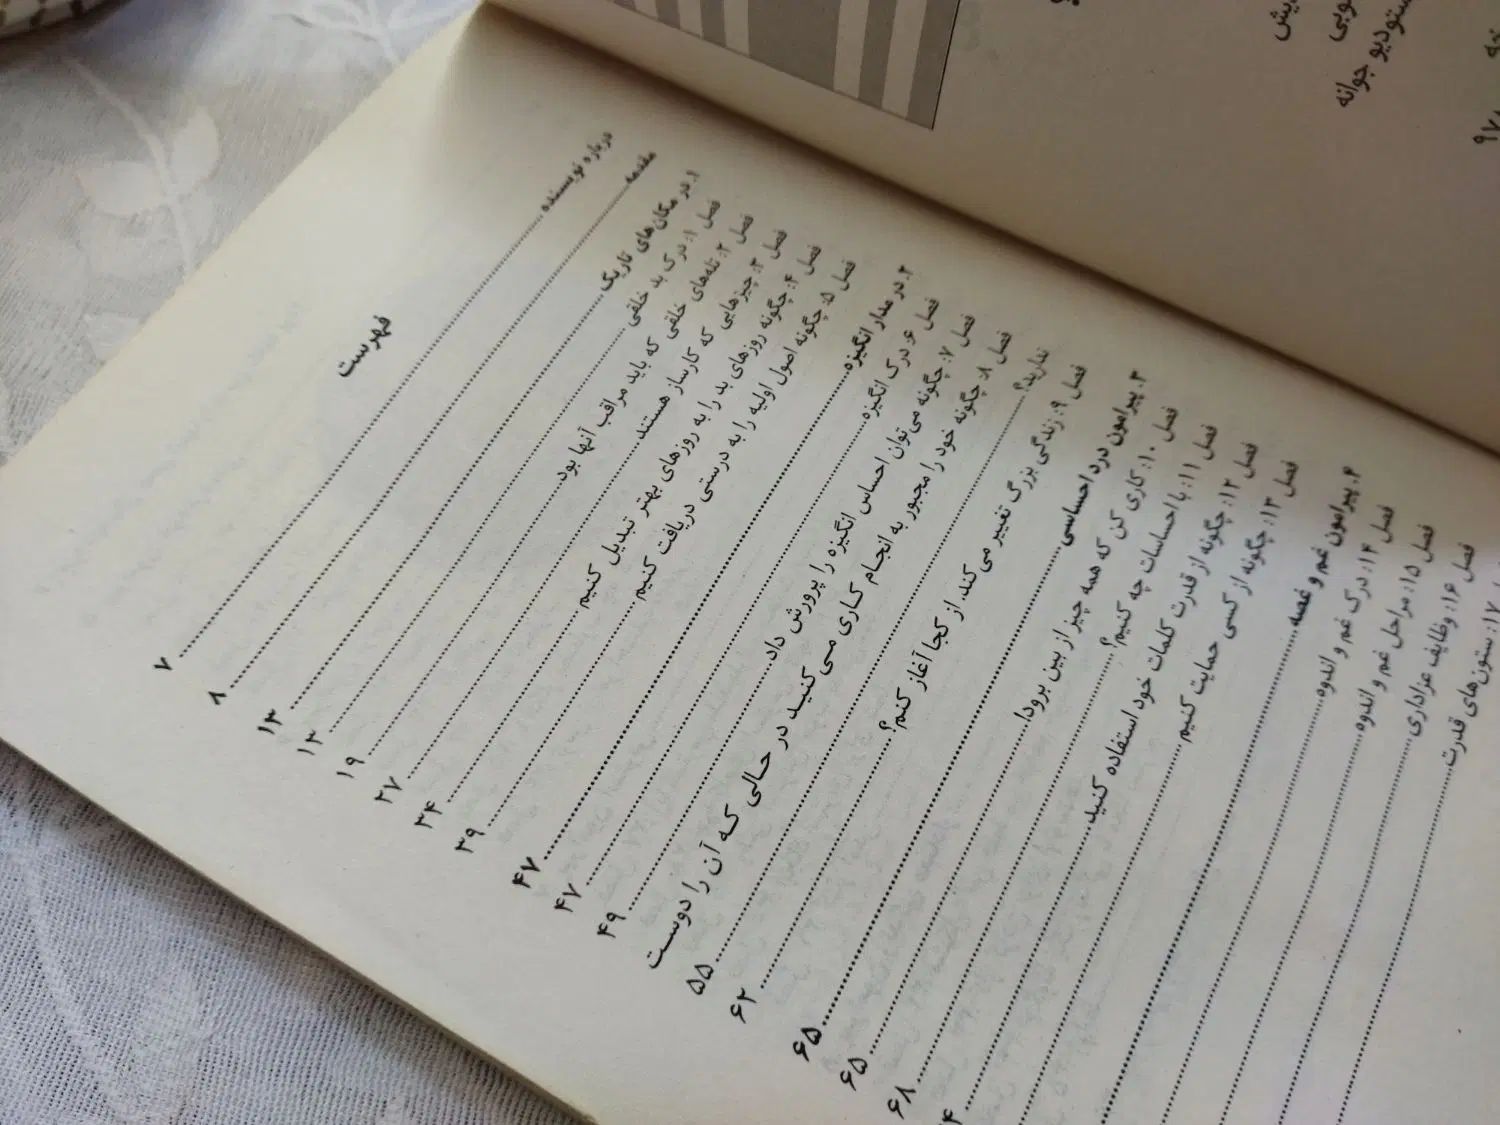 فهرست
درباره نویسنده ۷
مقدمه ۸
۱. در مکان‌های تاریک ۱۳
فصل ۱: درک بد خلقی ۱۳
فصل ۲: تله‌های خلقی که باید مراقب آنها بود ۱۹
فصل ۳: چیزهایی که کارساز هستند ۲۷
فصل ۴: چگونه روزهای بد را به روزهای بهتر تبدیل کنیم ۳۴
فصل ۵: چگونه اصول اولیه را به درستی دریافت کنیم ۳۹
۲. در مدار انگیزه ۴۷
فصل ۶: درک انگیزه ۴۷
فصل ۷: چگونه می‌توان احساس انگیزه را پرورش داد ۴۹
فصل ۸: چگونه خود را مجبور به انجام کاری می‌کنید در حالی که آن را دوست
ندارید؟ ۵۵
فصل ۹: زندگی بزرگ تغییر می‌کند. از کجا آغاز کنم؟ ۶۲
۳. پیرامون درد احساسی ۶۵
فصل ۱۰: کاری کن که همه چیز از بین برود! ۶۵
فصل ۱۱: با احساسات چه کنیم؟ ۶۸
فصل ۱۲: چگونه از قدرت کلمات خود استفاده کنید
فصل ۱۳: چگونه از کسی حمایت کنیم
۴. پیرامون غم و غصه
فصل ۱۴: درک غم و اندوه
فصل ۱۵: مراحل غم و اندوه
فصل ۱۶: وظایف عزاداری
۱۷: ستون‌های قدرت
استودیو جوانه
۹۷۸